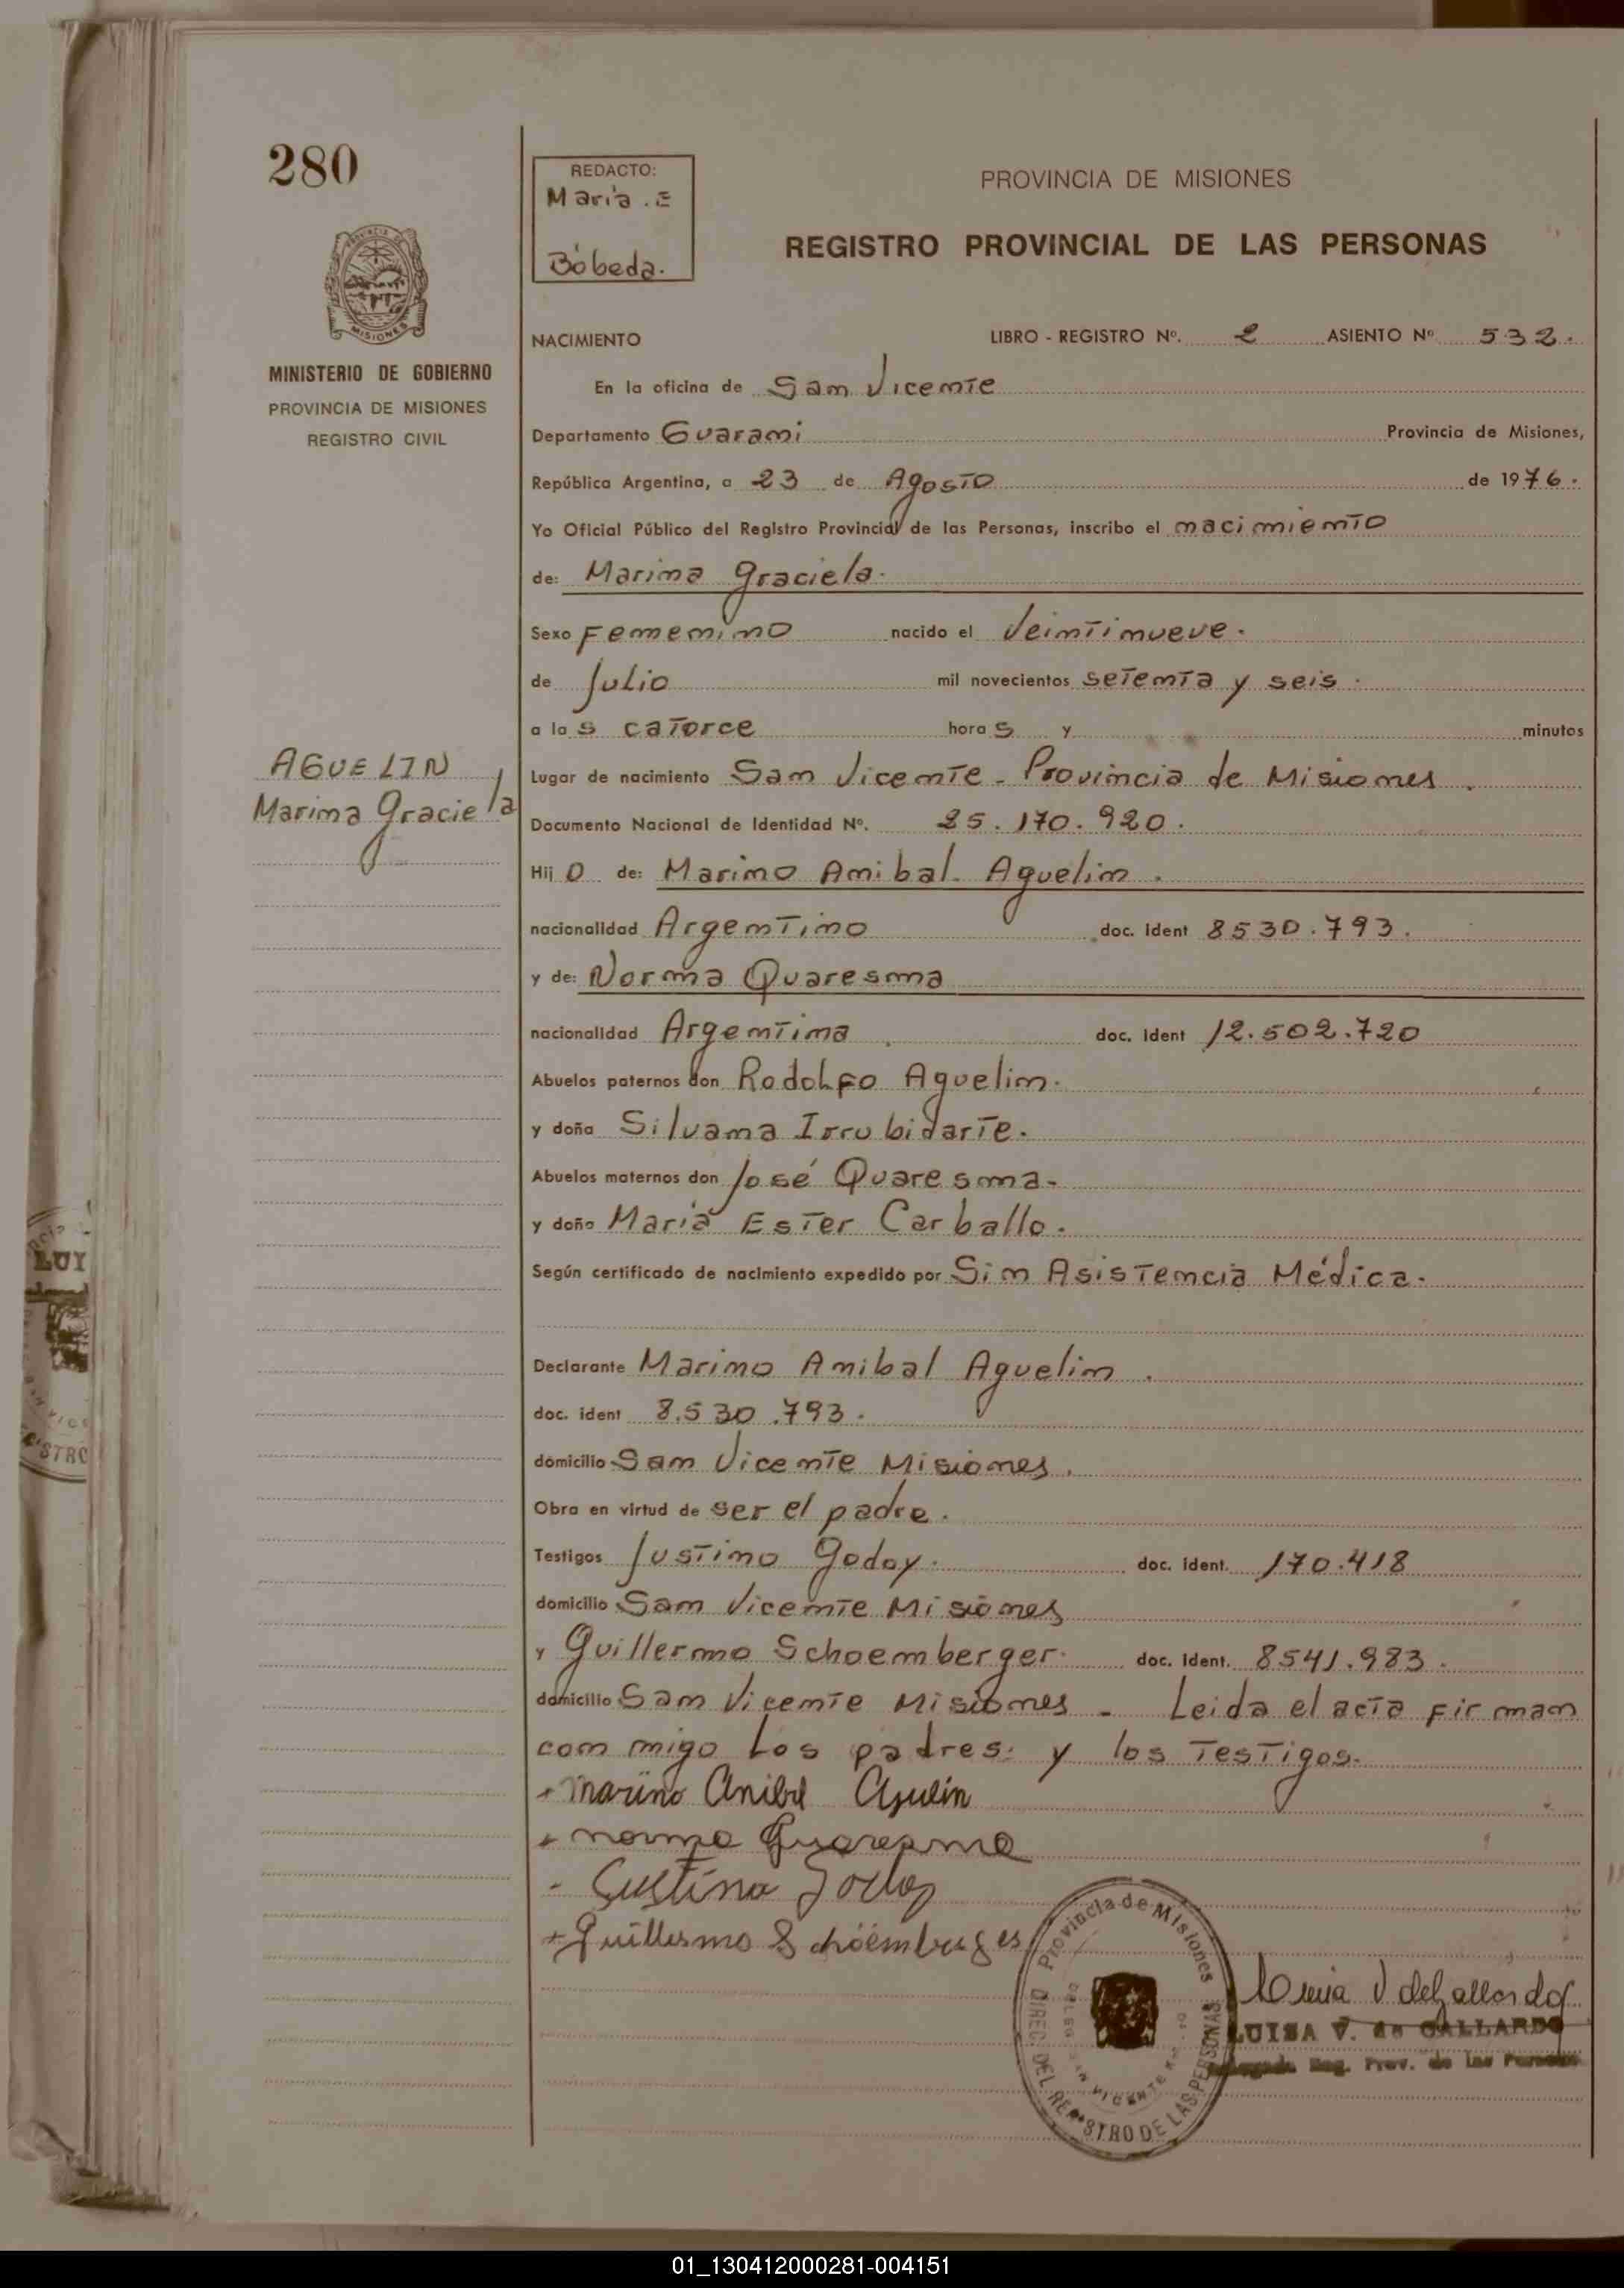 280
REDACTO:
María . E
Bóbeda.
PROVINCIA DE MISIONES
REGISTRO PROVINCIAL DE LAS PERSONAS
MISIONES
MINISTERIO DE GOBIERNO
PROVINCIA DE MISIONES
REGISTRO CIVIL
NACIMIENTO LIBRO - REGISTRO Nº. 2 ASIENTO Nº 532.
En la oficina de San Vicente
Departamento Guarani Provincia de Misiones,
República Argentina, a 23 de Agosto de 1976.
Yo Oficial Público del Registro Provincial de las Personas, inscribo el nacimiento
de: Marina Graciela.
Sexo Femenino nacido el Veintinueve.
de Julio mil novecientos setenta y seis.
a las catorce horas y minutos
AGUELIN,
Marina Graciela
Lugar de nacimiento San Vicente - Provincia de Misiones.
Documento Nacional de Identidad Nº. 25.170.920.
Hijo de: Marino Anibal Aguelin.
nacionalidad Argentino doc. ident 8530.793.
y de: Norma Quaresma
nacionalidad Argentina doc. ident 12.502.720
Abuelos paternos don Rodolfo Aguelin.
y doña Silvana Irrubidarte.
Abuelos maternos don José Quaresma.
y doña María Ester Carballo.
Según certificado de nacimiento expedido por Sin Asistencia Médica.
Declarante Marino Anibal Aguelin.
doc. ident 8.530.793.
domicilio San Vicente Misiones.
Obra en virtud de ser el padre.
Testigos Justino Godoy. doc. ident. 170.418
domicilio San Vicente Misiones
y Guillermo Schoenberger. doc. ident. 8541.983.
domicilio San Vicente Misiones - Leida el acta firman
con migo los padres: y los Testigos.
Marino Anibal Aguelin
norma Quaresma
Justino Godoy
Guillermo
Provincia de Misiones
DIREC. DEL REGISTRO DE LAS PERSONAS
Luisa V de Gallardo
LUISA V. de GALLARDO
Delegada Reg. Prov. de las Personas
LUI
STRO
01_130412000281-004151